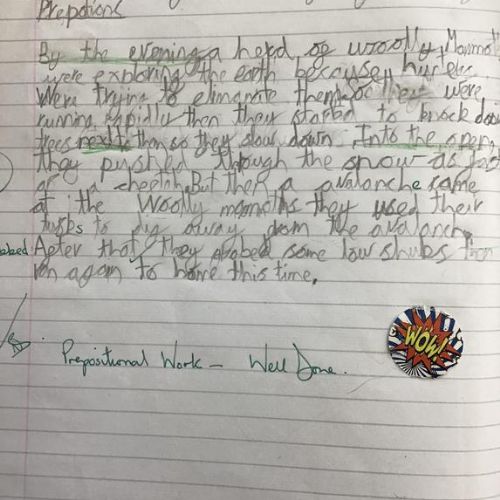 Prepotions
By the evening a herd of woolly Mammoths
were exploring the earth because hunters
were trying to elimanate them so they were
running rapidly then they started to knock down
trees next to them so they slow down. Into the open,
they pushed through the snow as fast
as a cheetah. But then a avalanche came
at the woolly mammoths they used their
tusks to dig away from the avalanch.
After that they grabed some low shubs then
ran again to home this time.
Prepositional Work - Well Done.
WOW!